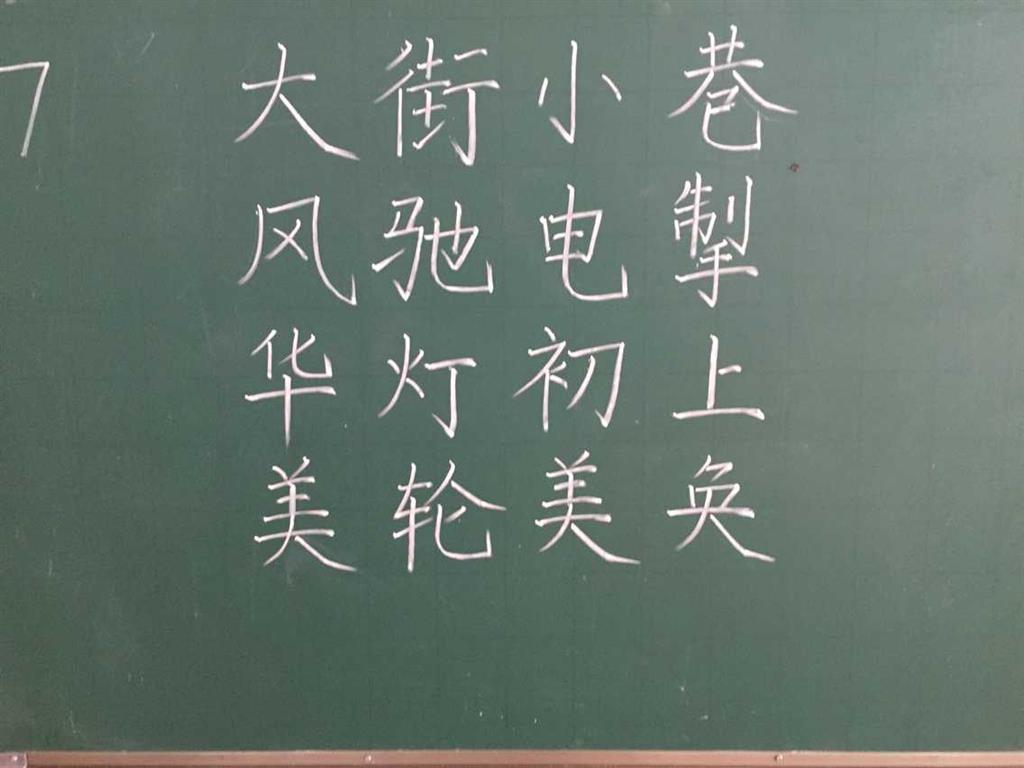 大街小巷
风驰电掣
华灯初上
美轮美奂